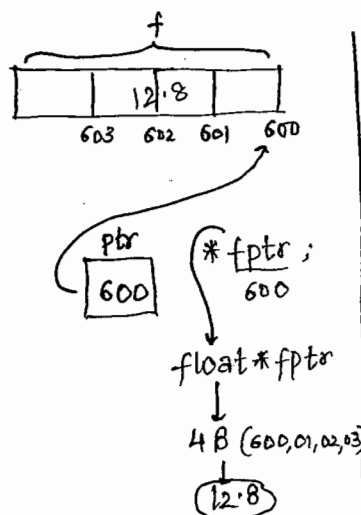 f
12.8
603 602 601 600
ptr
600
* fptr ;
600
float * fptr
4 B (600,01,02,03)
12.8